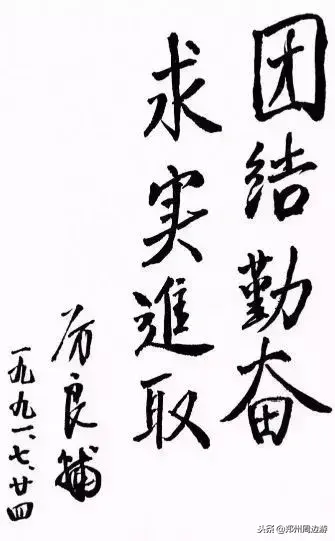 团结勤奋
求实進取
厉良辅
一九九一、七、廿四
头条@郑州周边游